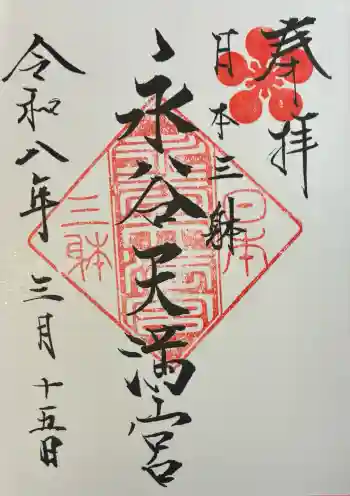 奉拝
日本三躰
永谷天満宮
令和八年三月十五日
日本
三躰